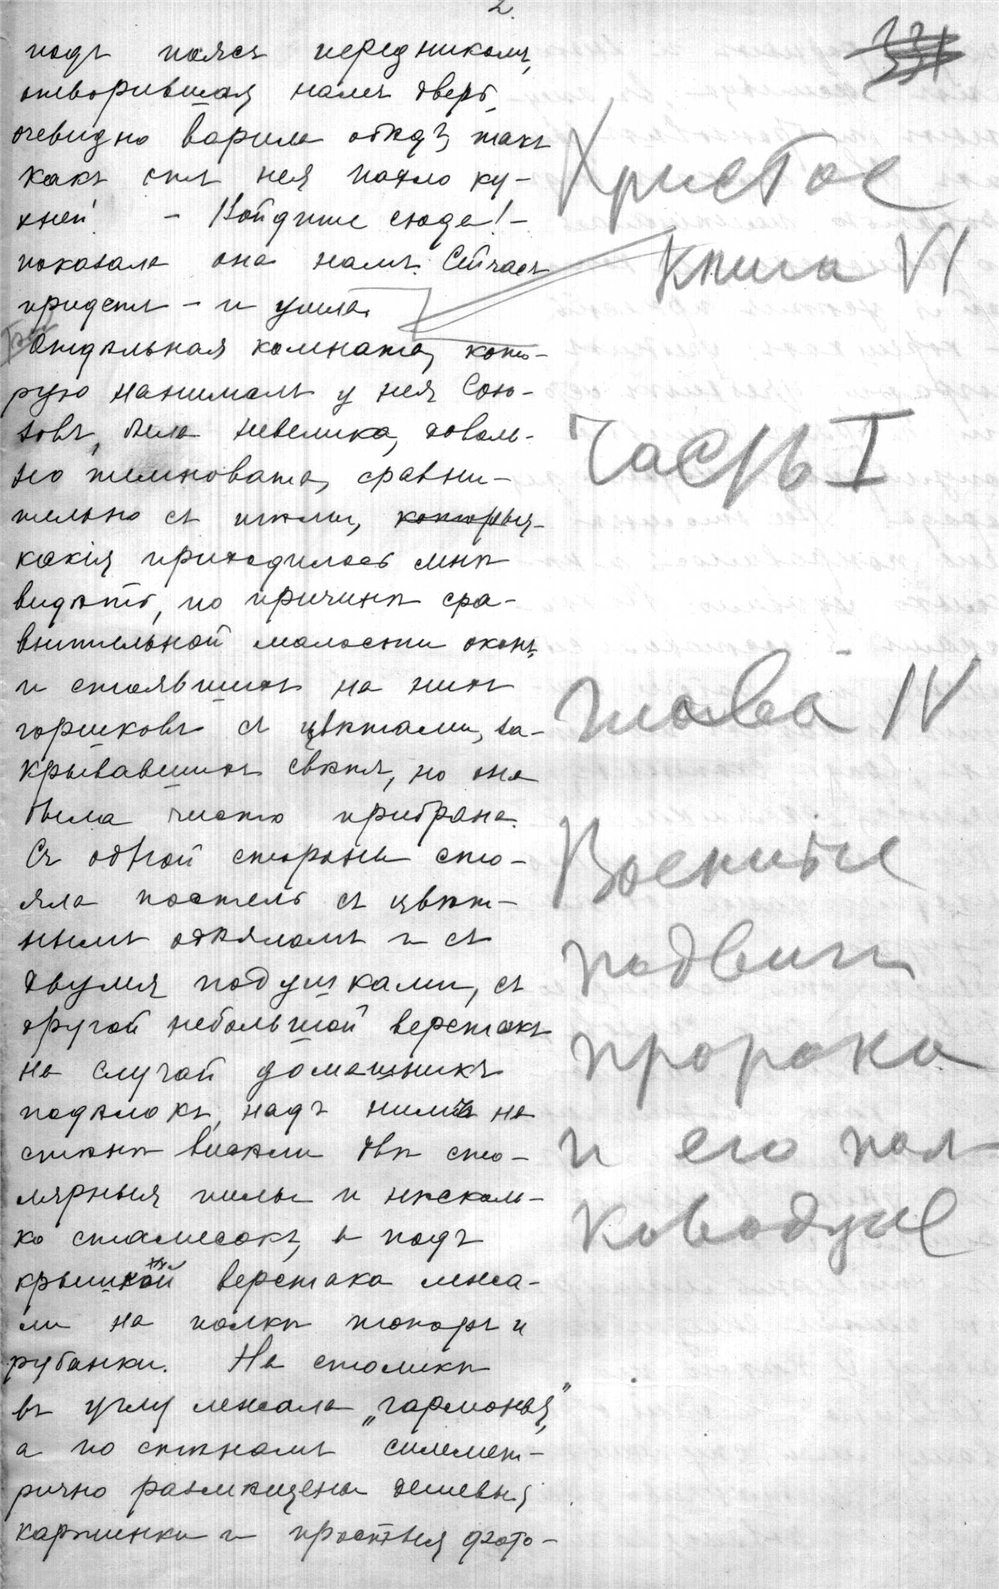 2.
подъ поясъ передникомъ,
отворившая намъ дверь,
очевидно варила обѣдъ, такъ
какъ отъ нея пахло ку-
хней. – Войдите сюда! –
показала она намъ. Сейчасъ
придетъ – и ушла.
Отдѣльная комната, кото-
рую нанималъ у нея Сою-
зовъ, была невелика, доволь-
но темновата, сравни-
тельно съ тѣми, которыя
какія приходилось мнѣ
видѣть, по причинѣ сра-
внительной малости оконъ,
и стоявшихъ на нихъ
горшковъ съ цвѣтами, за-
крывавшихъ свѣтъ, но она
была чисто прибрана.
Съ одной стороны сто-
яла постель съ цвѣт-
нымъ одѣяломъ и съ
двумя подушками, съ
другой небольшой верстакъ
на случай домашнихъ
подѣлокъ, надъ нимъ на
стѣнѣ висѣли двѣ сто-
лярныя пилы и нѣсколь-
ко стамесокъ, а подъ
крышкой верстака лежа-
ли на полкѣ топоръ и
рубанки. На столикѣ
въ углу лежала „гармонья“,
а по стѣнамъ симмет-
рично размѣщены дешевыя
картинки и простыя фото-
331
Христос
Книга VI
Часть I
глава IV
Военные
подвиги
пророка
и его пол-
ководцы